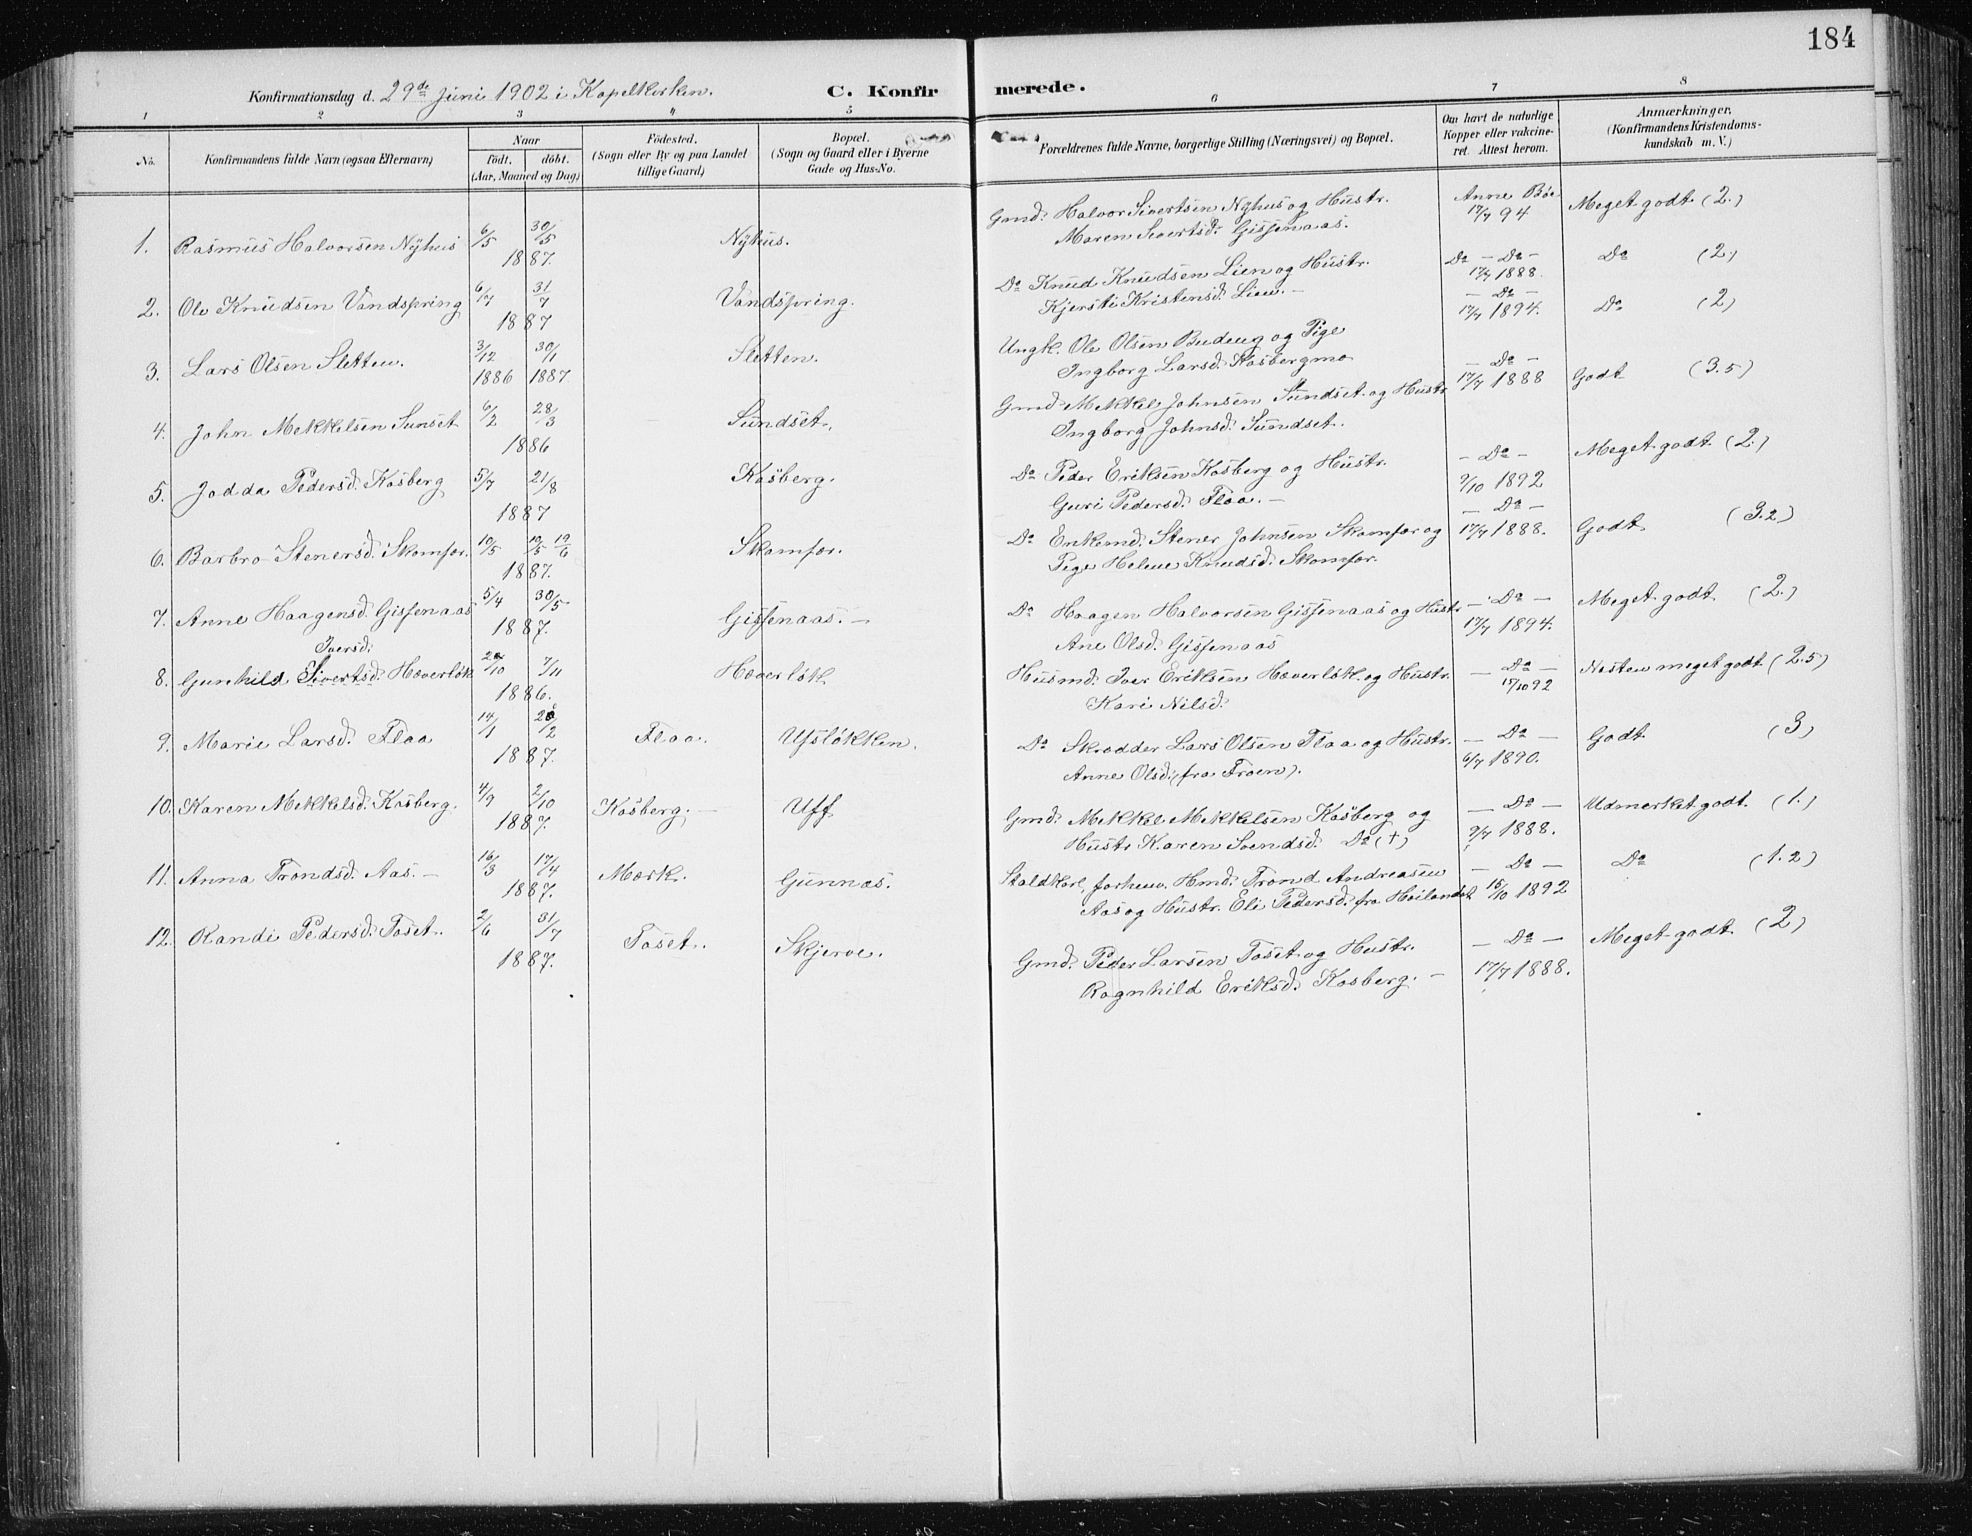 184
Konfirmationsdag d. 29de Juni 1902 i Kapelkirken. C. Konfirmerede.
1 2 3 4 5 6 7 8
No. Konfirmandens fulde Navn (ogsaa Efternavn) Naar født, døbt. (Aar, Maaned og Dag) Fødested. (Sogn eller By og paa Landet tillige Gaard) Bopæl. (Sogn og Gaard eller i Byerne Gade og Hus-No. Forældrenes fulde Navne, borgerlige Stilling (Næringsvei) og Bopæl. Om havt de naturlige Kopper eller vakcineret. Attest herom. Anmærkninger, (Konfirmandens Kristendomskundskab m. V.)
1. Rasmus Halvorsen Nyhus 6/5 30/5 1887. Nyhus. Gmd. Halvor Sivertsen Nyhus og Hustr. Anne Böe 17/7 94 Meget godt (2.)
Maren Sivertsd. Gissenaas.
2. Ole Knudsen Vandspring 6/7 31/7 1887 Vandspring. Do Knud Knudsen Lien og Hustr. Do - Do - 17/7 1888. Do (2.)
Kjersti Kristensd. Lien. -
3. Lars Olsen Sletten. 3/12 1886 30/1 1887. Sletten. Ungk. Ole Olsen Budeng og Pige - Do - 17/7 1894. Do (2)
Ingborg Larsd. Kosbergmo
4. John Mekkelsen Sunset 6/2 28/3 1886 Sundset. Gmd. Mekkel Johnsen Sundset og Hustr - Do - 17/7 1888 Godt (3.5)
Ingborg Johnsd. Sundset.
5. Jodda Pedersd. Kosberg 5/7 21/8 1887 Kosberg. Do Peder Eriksen Kosberg og Hustr. - Do - 9/10 1892 Meget godt (2.)
Guri Pedersd. Flaa. -
6. Barbro Stenersd. Skomfar. 10/5 19/6 1887. Skomfar. Do Enkemd. Stener Johnsen Skomfar og - Do - 17/7 1888. Godt (3.2)
Pige Helene Knudsd. Skomfar.
7. Anne Haagensd. Gissenaas 5/4 30/5 1887. Gissenaas. - Do Haagen Halvorsen Gissenaas og Hustr - Do - 17/7 1894. Meget godt (2.)
Ane Olsd. Gissenaas
Iversd.
8. Gunhild Sivertsd. Hæverløk. /10 7/11 1886. Hæverløk. Husmd. Iver Eriksen Hæverløk. og Hustr. - Do - 15/10 92 Næsten meget godt (2.5)
Kari Nilsd.
9. Marie Larsd. Flaa 14/1 20/2 1887. Flaa. Ufsløkken. Do Skrædder Lars Olsen Flaa og Hustr. - Do - 6/7 1890. Godt (3)
Anne Olsd. (fra Froen).
10. Karen Mekkelsd. Kosberg. 4/9 2/10 1887. Kosberg. - Uff Gmd. Mekkel Mekkelsen Kosberg og - Do - 9/7 1888. Udmerket godt. (1.)
Hustr Karen Svendsd. Do (+)
11. Anna Trondsd. Aas. - 16/3 17/4 1887. Mærk. Gunnas. Staldkarl, forhenv. Hmd. Trond Andreasen - Do - 15/10 1892 Do (1.2)
Aas og Hustr. Eli Pedersd. fra Høilandet
12. Randi Pedersd. Foset. 2/6 31/7 1887. Foset. Skjerve. Gmd. Peder Larsen Foset og Hustr. - Do - 17/7 1888. Meget godt (2)
Ragnhild Eriksd. Kosberg. -